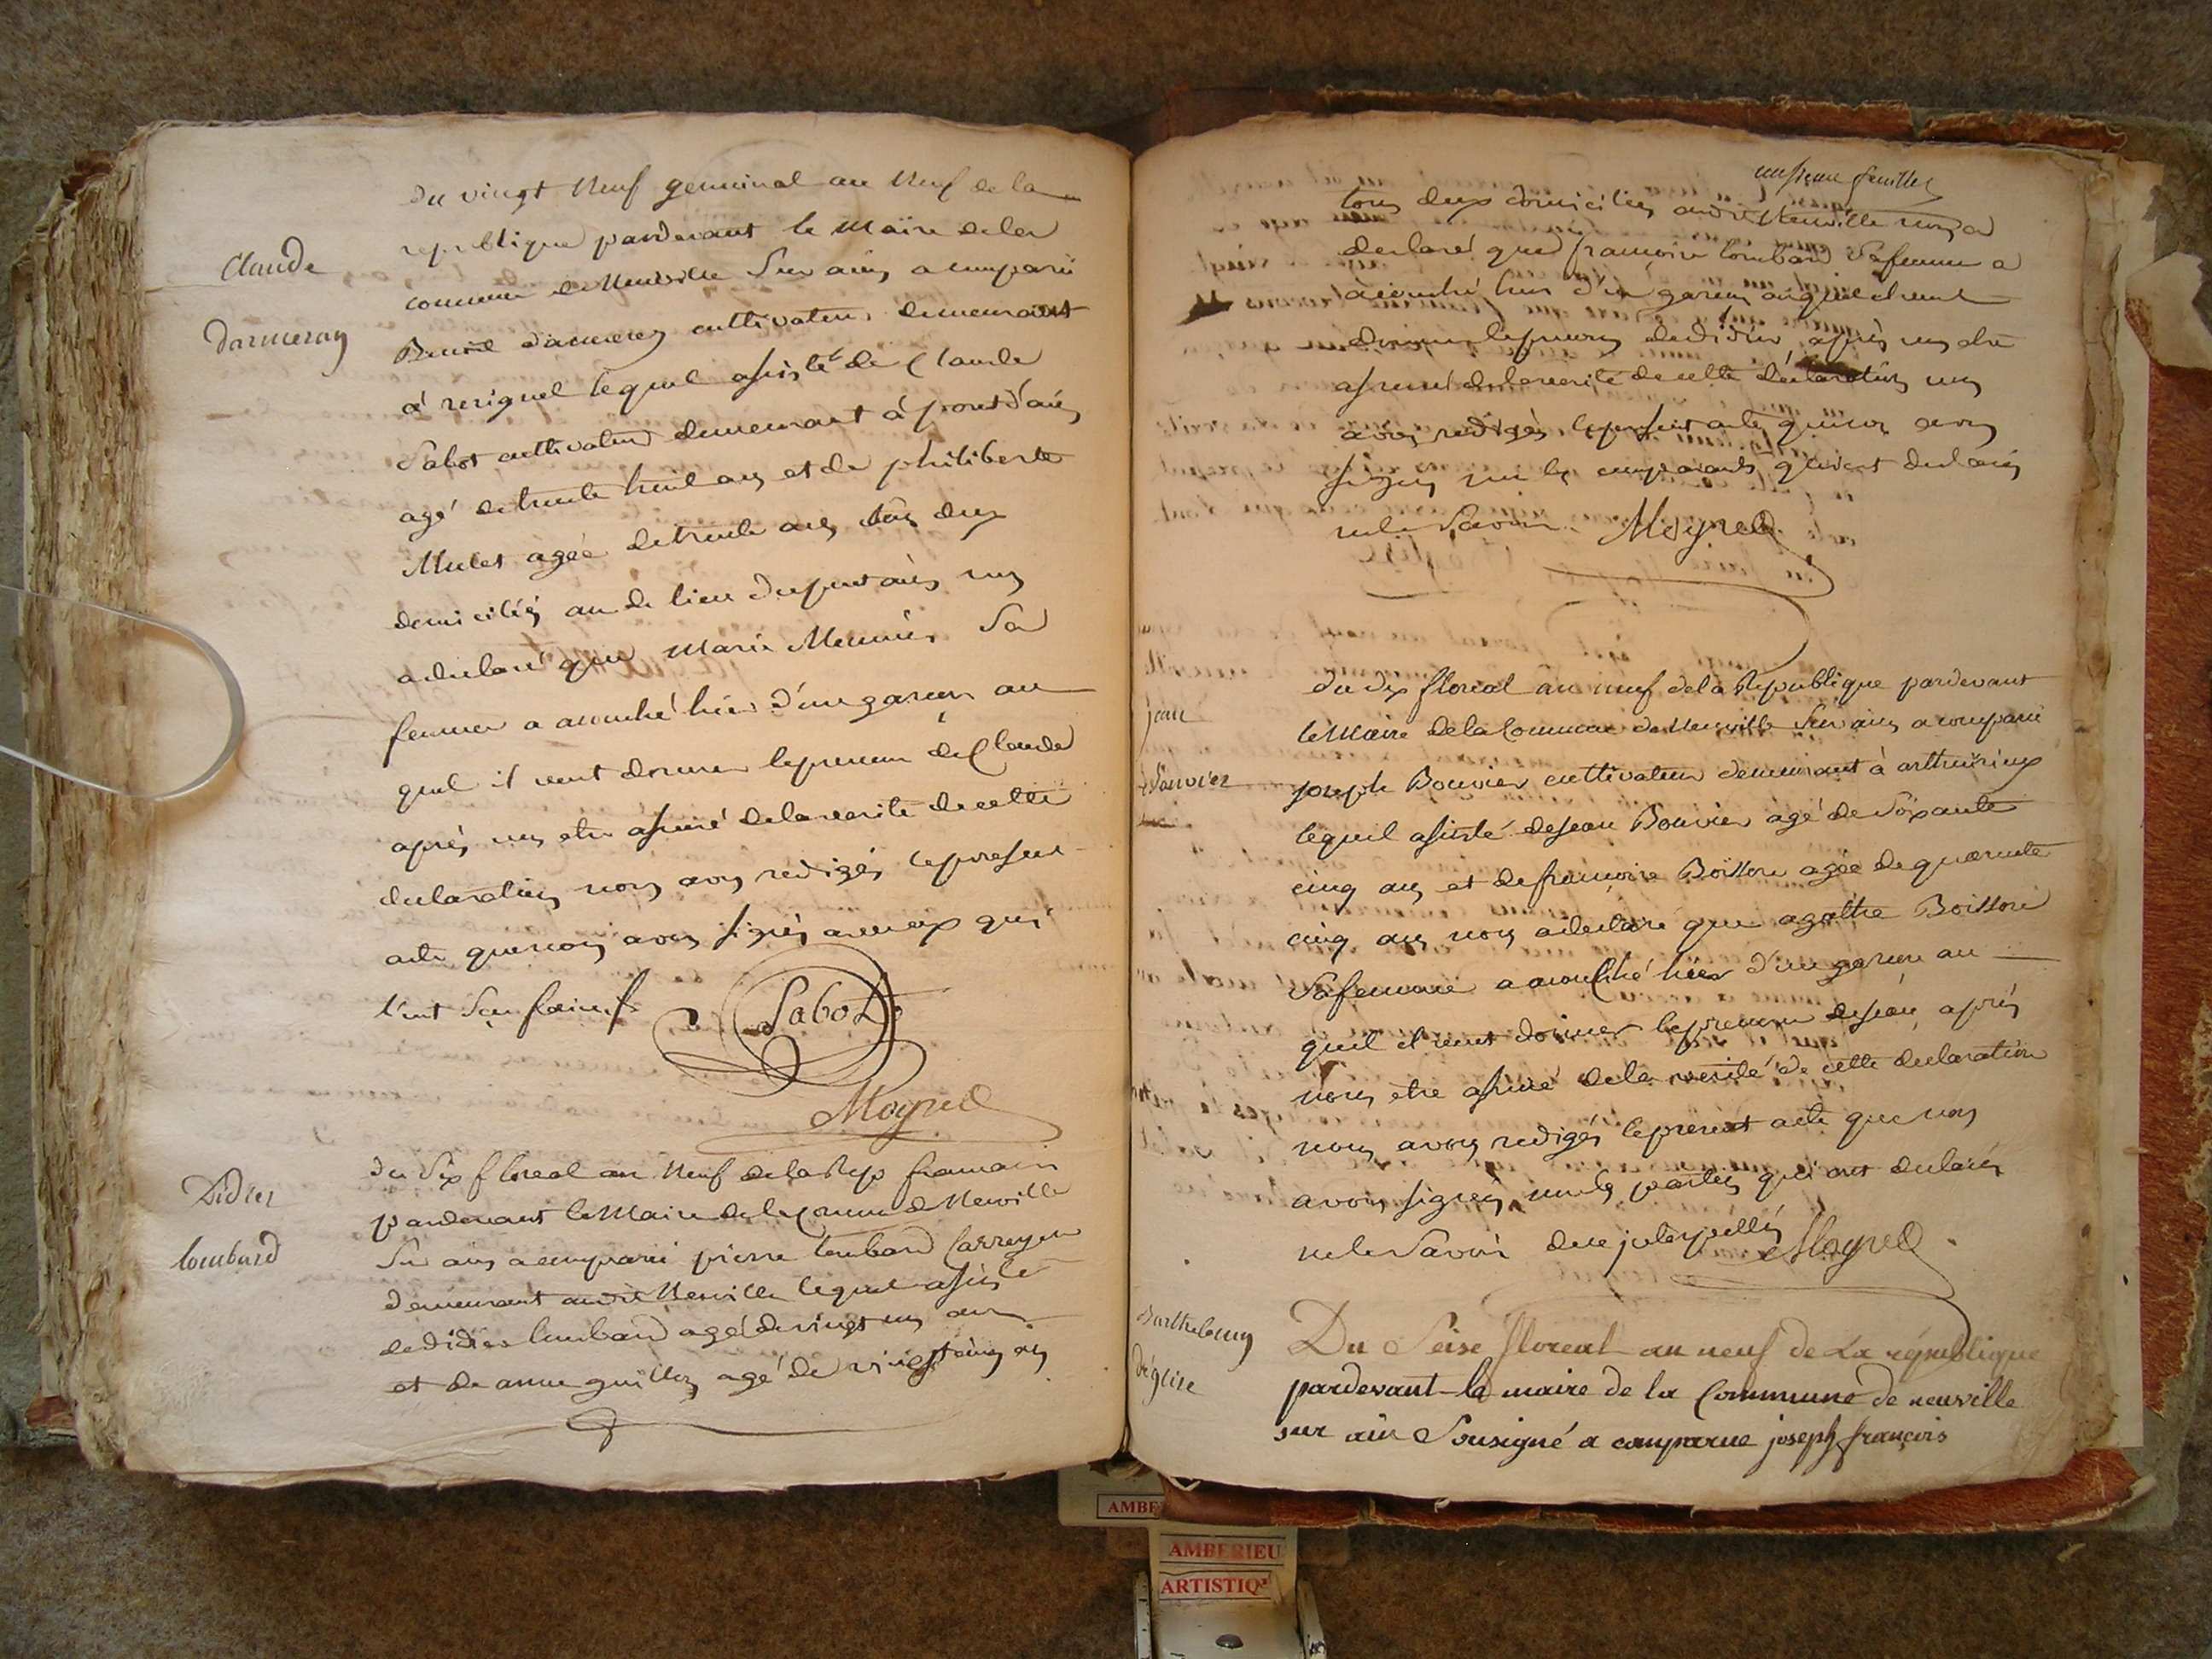 Claude
Darmeran
du vingt Neuf germinal an Neuf de la
republique pardevant le Maire de la
commune de Neuville Sur ain a comparü
Benoit darmeran cultivateur demeurant
à resignel lequel assisté de Claude
Sabot cultivateur demeurant à pont d'ain
agé de trente huit ans et de philiberte
Mulet agée de trente ans tous deux
domicilés au dt lieu du pont d'ain nous
a declaré que Marie Meunier Sa
femme a accouché hier d'un garcon au
quel il veut donner le prenom de Claude
après nous etre assuré de la verité de cette
declaration nous avons redigés le present
acte que nous avons signés avec eux qui
l'ont Seu faire
Sabot
Moyret
Didier
lombard
du Six floreal an Neuf de la Rep francaise
pardevant le Maire de la Comune de Neuville
Sur ain a comparu pierre lombard
demeurant audit Neuville lequel assisté
de didier lombard agé de vingt un ans
et de anne guillon agé de vingt cinq ans
onsieme feuillet
tous deux domiciliés audit Neuville nous a
declaré que francoise lombard Sa femme a
accouché hier d'un garcon auquel il veut
donner le prenom de didier après nous etre
assuré de la verité de cette declaration nous
avons redigés le present acte que nous avons
signés non les comparants qui ont declarés
ne le Savoir. Moyret
jean
Bouvier
du dix floreal an neuf de la Republique pardevant
le Maire de la Commune de Neuville Sur ain a comparü
joseph Bouvier cultivateur demeurant à
lequel assisté de jean Bouvier agé de Soixante
cinq ans et de francoise Boisson agée de quarente
cinq ans nous a declaré que agathe Boisson
Sa femme a accouché hier d'un garcon au
quel il veut donner le prenom de jean après
nous etre assuré de la verité de cette declaration
nous avons redigés le present acte que nous
avons signés non les parties qui ont declarés
ne le Savoir de ce jnterpellés Moyret
Barthelemy
Déglise
Du Seise floreal an neuf de La république
pardevant le maire de la Commune de neuville
sur ain Sousigné a comparue joseph françois
AMBE
AMBERIEU
ARTISTIQ